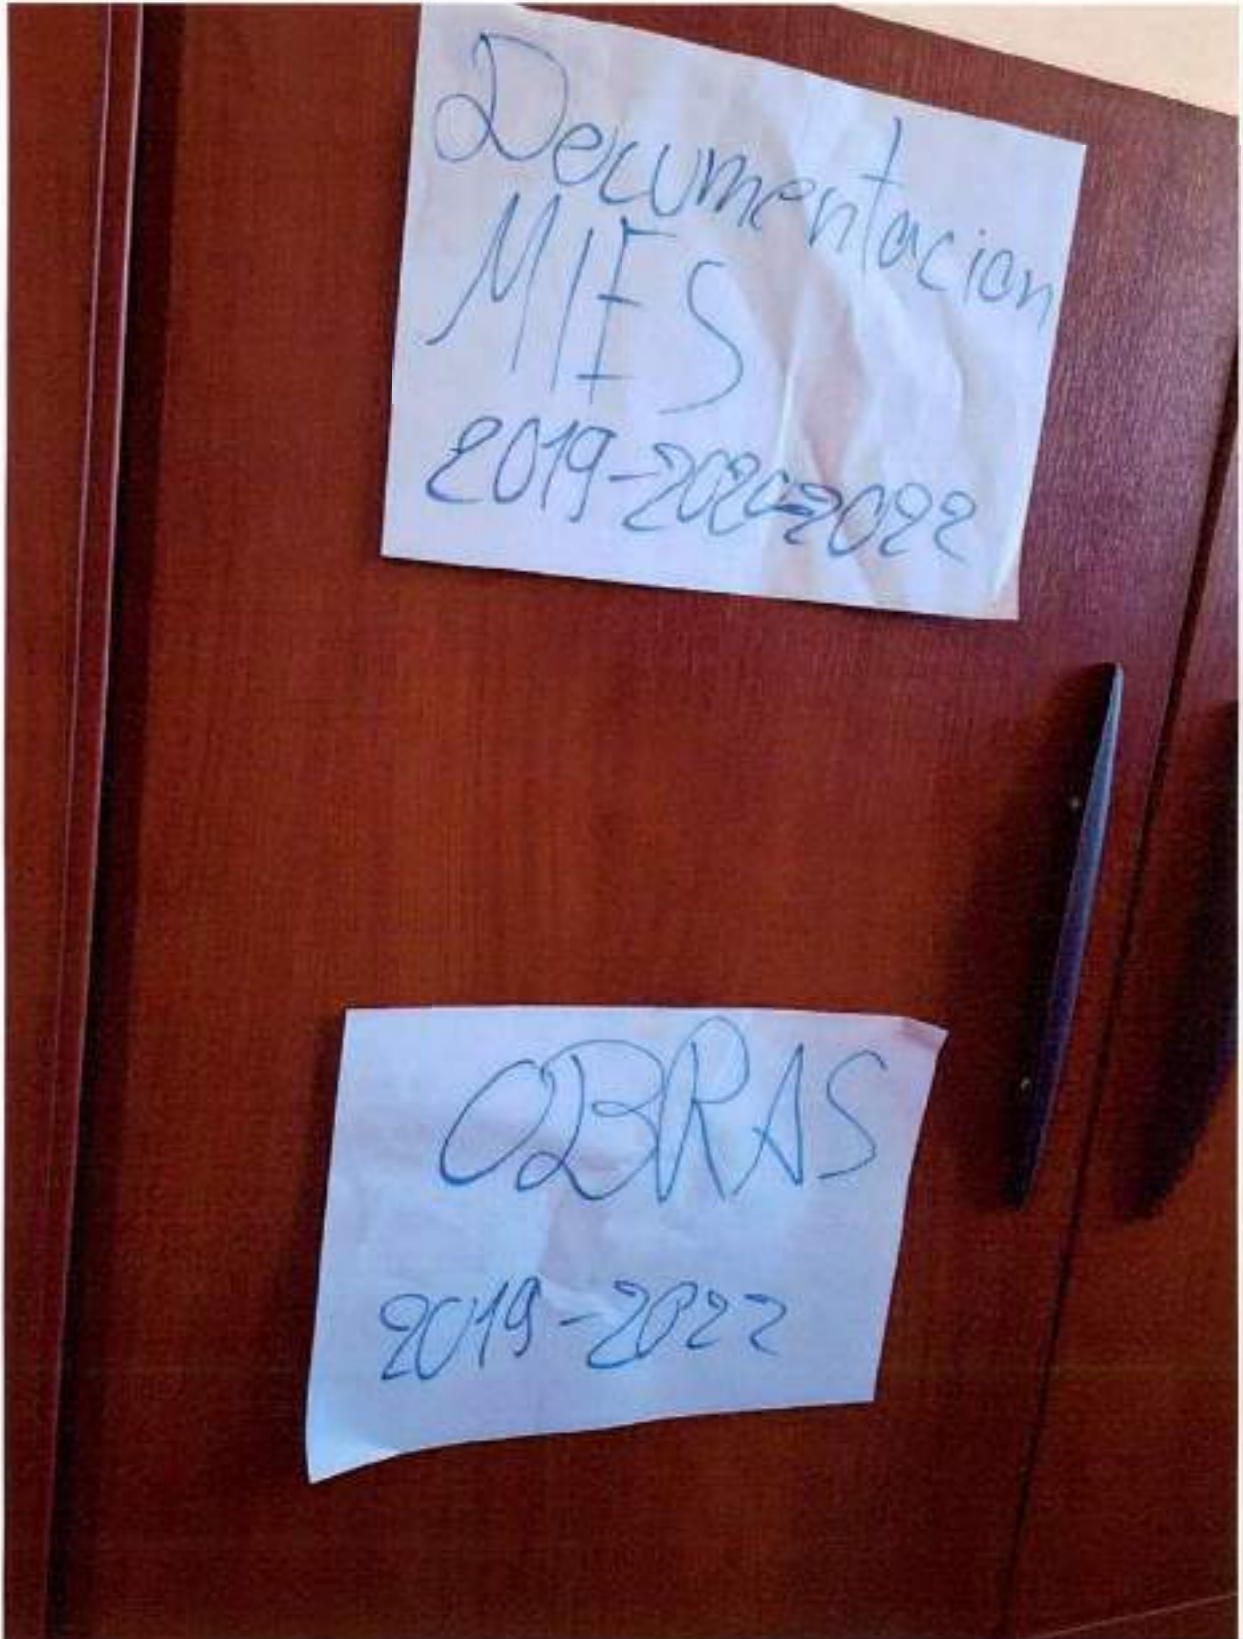 Documentacion
MIES
2019-2020-2022
OBRAS
2019-2022